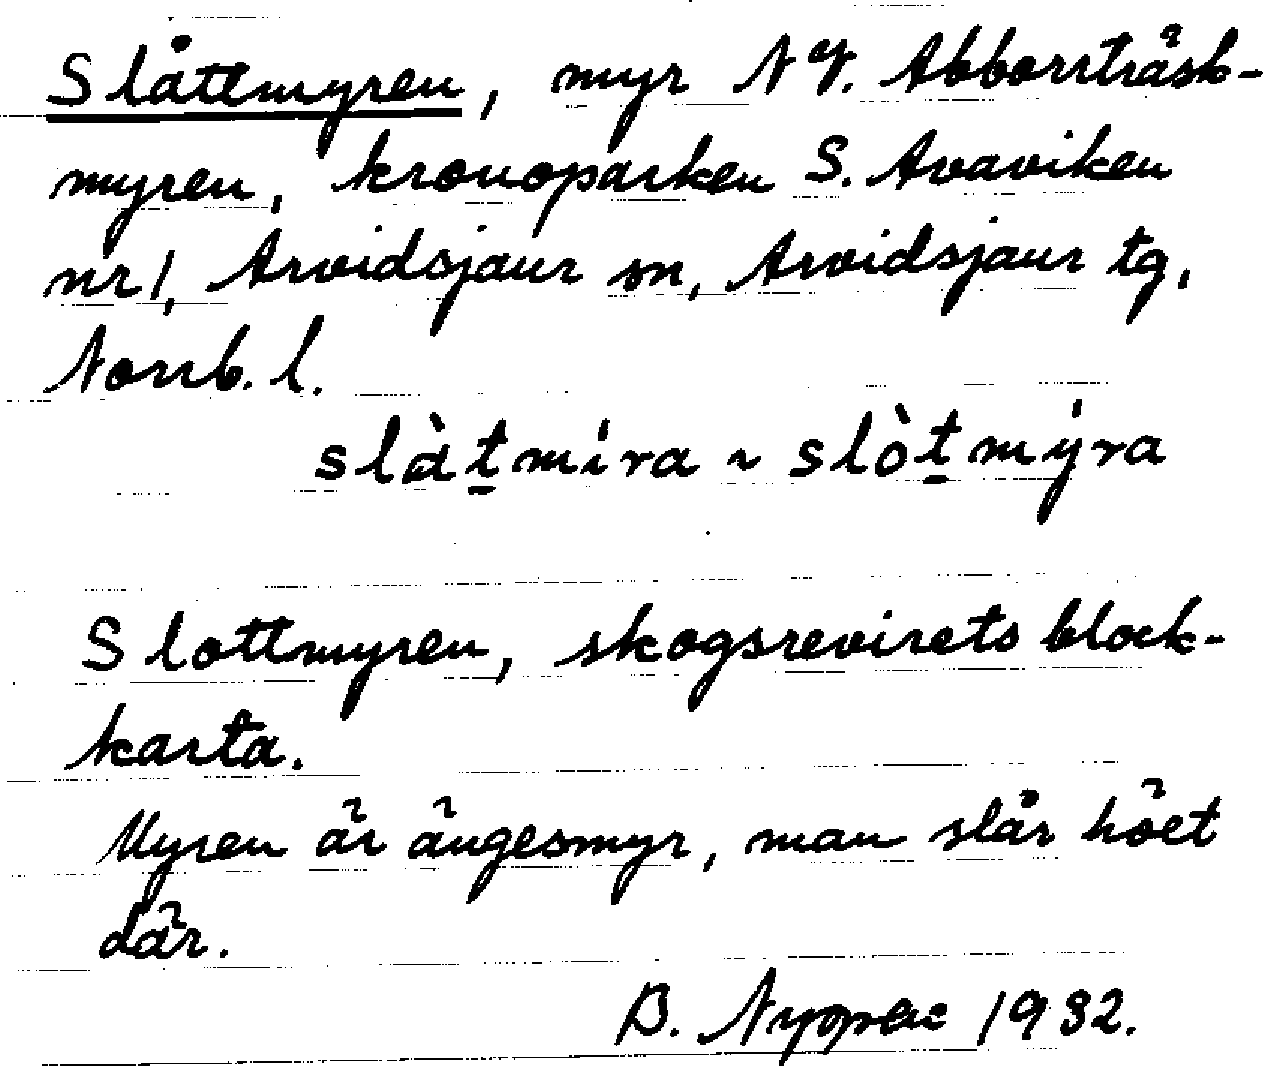 Slåttmyren, myr N V. Abborrträsk-
myren, kronoparken S. Avaviken
nr 1, Arvidsjaur sn, Arvidsjaur tg,
Norrb. l.
slàt̲míra ~ slòt̲mýra
Slottmyren, skogsrevirets block-
karta.
Myren är ängesmyr, man slår höet
där.
B. 1932.